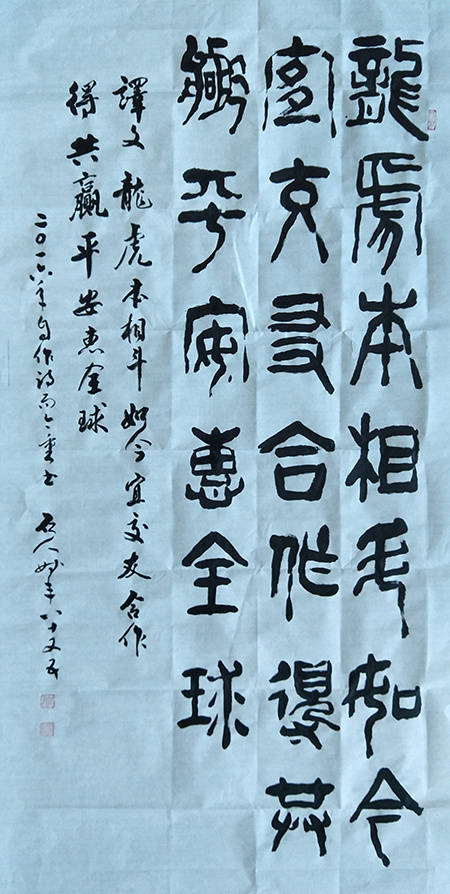 龍虎本相斗如今
宜交友合作得共
贏平安惠全球
譯文龍虎本相斗如今宜交友合作
得共贏平安惠全球
二〇一六年自作诗而今重书 石人时年八十又五